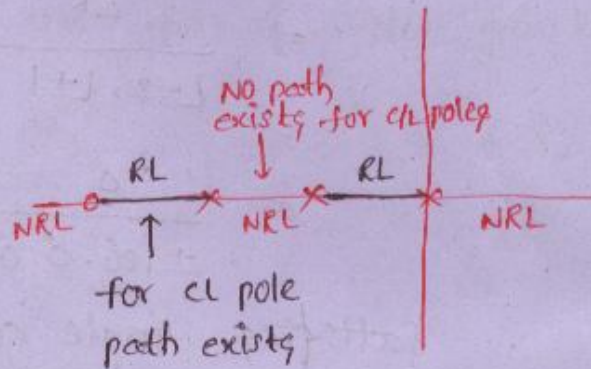 NO path
exists for c/L poles
RL
RL
NRL
NRL
NRL
for cl pole
path exists